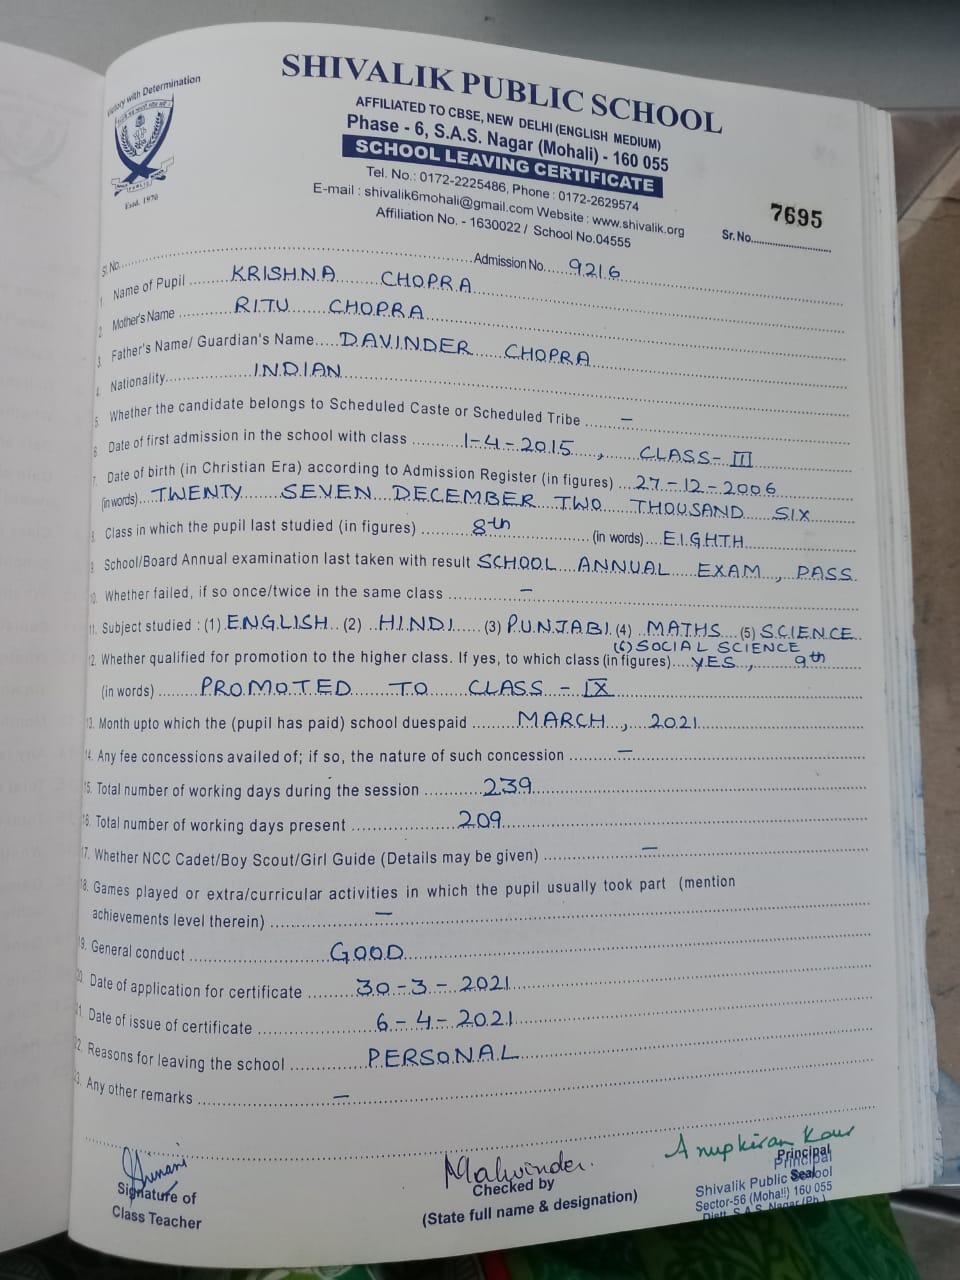 Victory with Determination
PUBLIC
Estd. 1970
SHIVALIK PUBLIC SCHOOL
AFFILIATED TO CBSE, NEW DELHI (ENGLISH MEDIUM)
Phase - 6, S.A.S. Nagar (Mohali) - 160 055
SCHOOL LEAVING CERTIFICATE
Tel. No.: 0172-2225486, Phone : 0172-2629574
E-mail : shivalik6mohali@gmail.com Website : www.shivalik.org
Affiliation No. - 1630022 / School No.04555
7695
Sr. No.
Sl No. Admission No. 9216
1. Name of Pupil KRISHNA CHOPRA
2. Mother's Name RITU CHOPRA
3. Father's Name/ Guardian's Name DAVINDER CHOPRA
4. Nationality INDIAN
5. Whether the candidate belongs to Scheduled Caste or Scheduled Tribe —
6. Date of first admission in the school with class 1-4-2015, CLASS-III
7. Date of birth (in Christian Era) according to Admission Register (in figures) 27-12-2006
(in words) TWENTY SEVEN DECEMBER TWO THOUSAND SIX
8. Class in which the pupil last studied (in figures) 8th (in words) EIGHTH
9. School/Board Annual examination last taken with result SCHOOL ANNUAL EXAM, PASS
10. Whether failed, if so once/twice in the same class —
11. Subject studied : (1) ENGLISH (2) HINDI (3) PUNJABI (4) MATHS (5) SCIENCE
(6) SOCIAL SCIENCE
12. Whether qualified for promotion to the higher class. If yes, to which class (in figures) YES, 9th
(in words) PROMOTED TO CLASS - IX
13. Month upto which the (pupil has paid) school duespaid MARCH, 2021
14. Any fee concessions availed of; if so, the nature of such concession —
15. Total number of working days during the session 239
16. Total number of working days present 209
17. Whether NCC Cadet/Boy Scout/Girl Guide (Details may be given) —
18. Games played or extra/curricular activities in which the pupil usually took part (mention
achievements level therein) —
19. General conduct GOOD
20. Date of application for certificate 30-3-2021
21. Date of issue of certificate 6-4-2021
22. Reasons for leaving the school PERSONAL
23. Any other remarks —
Malwinder. Anupkiran Kaur
Signature of
Class Teacher
Checked by
(State full name & designation)
Principal
Principal
Seal
Shivalik Public School
Sector-56 (Mohali) 160 055
Distt. S.A.S. Nagar (Pb.)